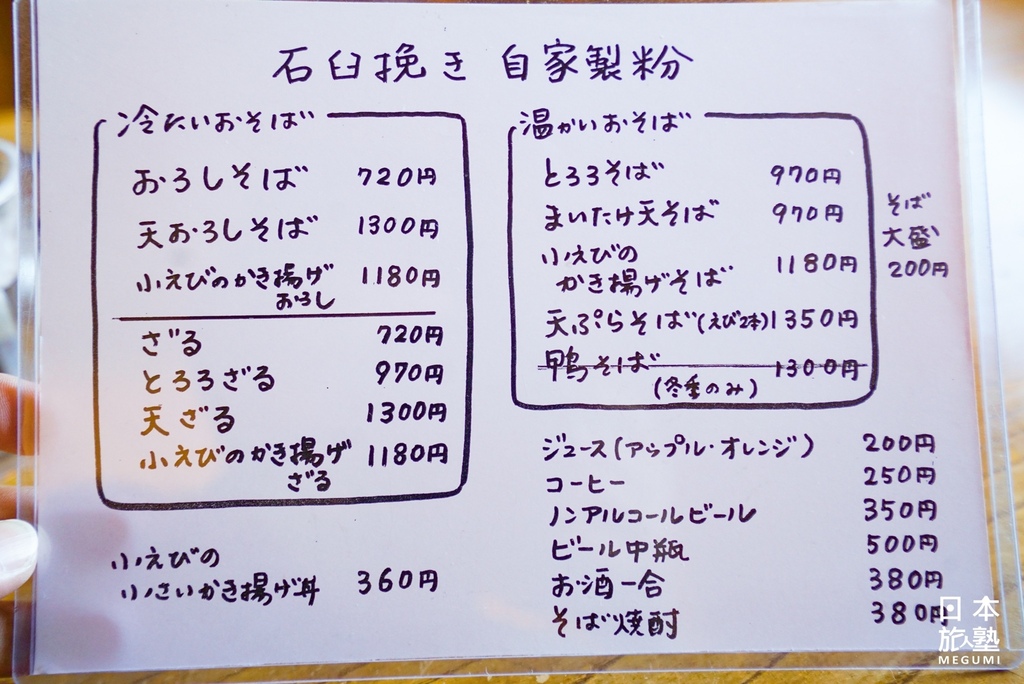 石臼挽き 自家製粉
冷たいおそば
おろしそば 720円
天おろしそば 1300円
小えびのかき揚げ 1180円
おろし
ざる 720円
とろろざる 970円
天ざる 1300円
小えびのかき揚げ 1180円
ざる
小えびの
小さいかき揚げ丼 360円
温かいおそば
とろろそば 970円
まいたけ天そば 970円
小えびの
かき揚げそば 1180円
天ぷらそば(えび2本) 1350円
鴨そば 1300円
(冬季のみ)
そば
大盛
200円
ジュース(アップル・オレンジ) 200円
コーヒー 250円
ノンアルコールビール 350円
ビール中瓶 500円
お酒一合 380円
そば焼酎 380円
日本
旅塾
MEGUMI